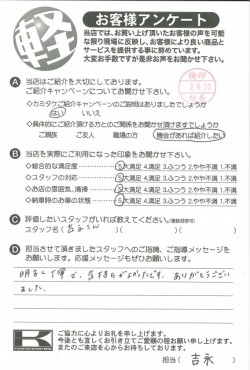 軽
お客様アンケート
当店では、お買い上げ頂いたお客様の声を可能
な限り現場に反映し、お客様により良い商品と
サービスを提供する事に努めています。
大変お手数ですが是非お声をお聞かせ下さい。
A 当店はご紹介を大切にしてあります。
ご紹介キャンペーンについてお聞かせ下さい。
◇カミタケご紹介キャンペーンのご説明はありましたでしょうか
はい いいえ
◇具体的にご紹介頂ける方とのご関係をお聞かせ頂けますでしょうか
ご親族 ご友人 職場の方 機会があれば紹介したい
B 当店を実際にご利用になった印象をお聞かせ下さい。
◇総合的な満足度 5.大満足 4.満足 3.ふつう 2.やや不満 1.不満
◇スタッフの対応 5.大満足 4.満足 3.ふつう 2.やや不満 1.不満
◇お店の雰囲気、清掃 5.大満足 4.満足 3.ふつう 2.やや不満 1.不満
◇納車時のお車の状態 5.大満足 4.満足 3.ふつう 2.やや不満 1.不満
C 評価したいスタッフがいれば教えてください。(複数回答可)
スタッフ名(吉永さん)
D 担当させて頂きましたスタッフへのご指摘、ご指導メッセージを
お願いします。応援メッセージもぜひお願いします。
明るく丁寧で、気持ちがよかったです。ありがとうござい
ました。
K
ご協力に心よりお礼を申し上げます。
今後とも宜しくお引き立てご愛顧の程お願い申し上げます。
またのご来店を心からお待ちしております。
担当(吉永)